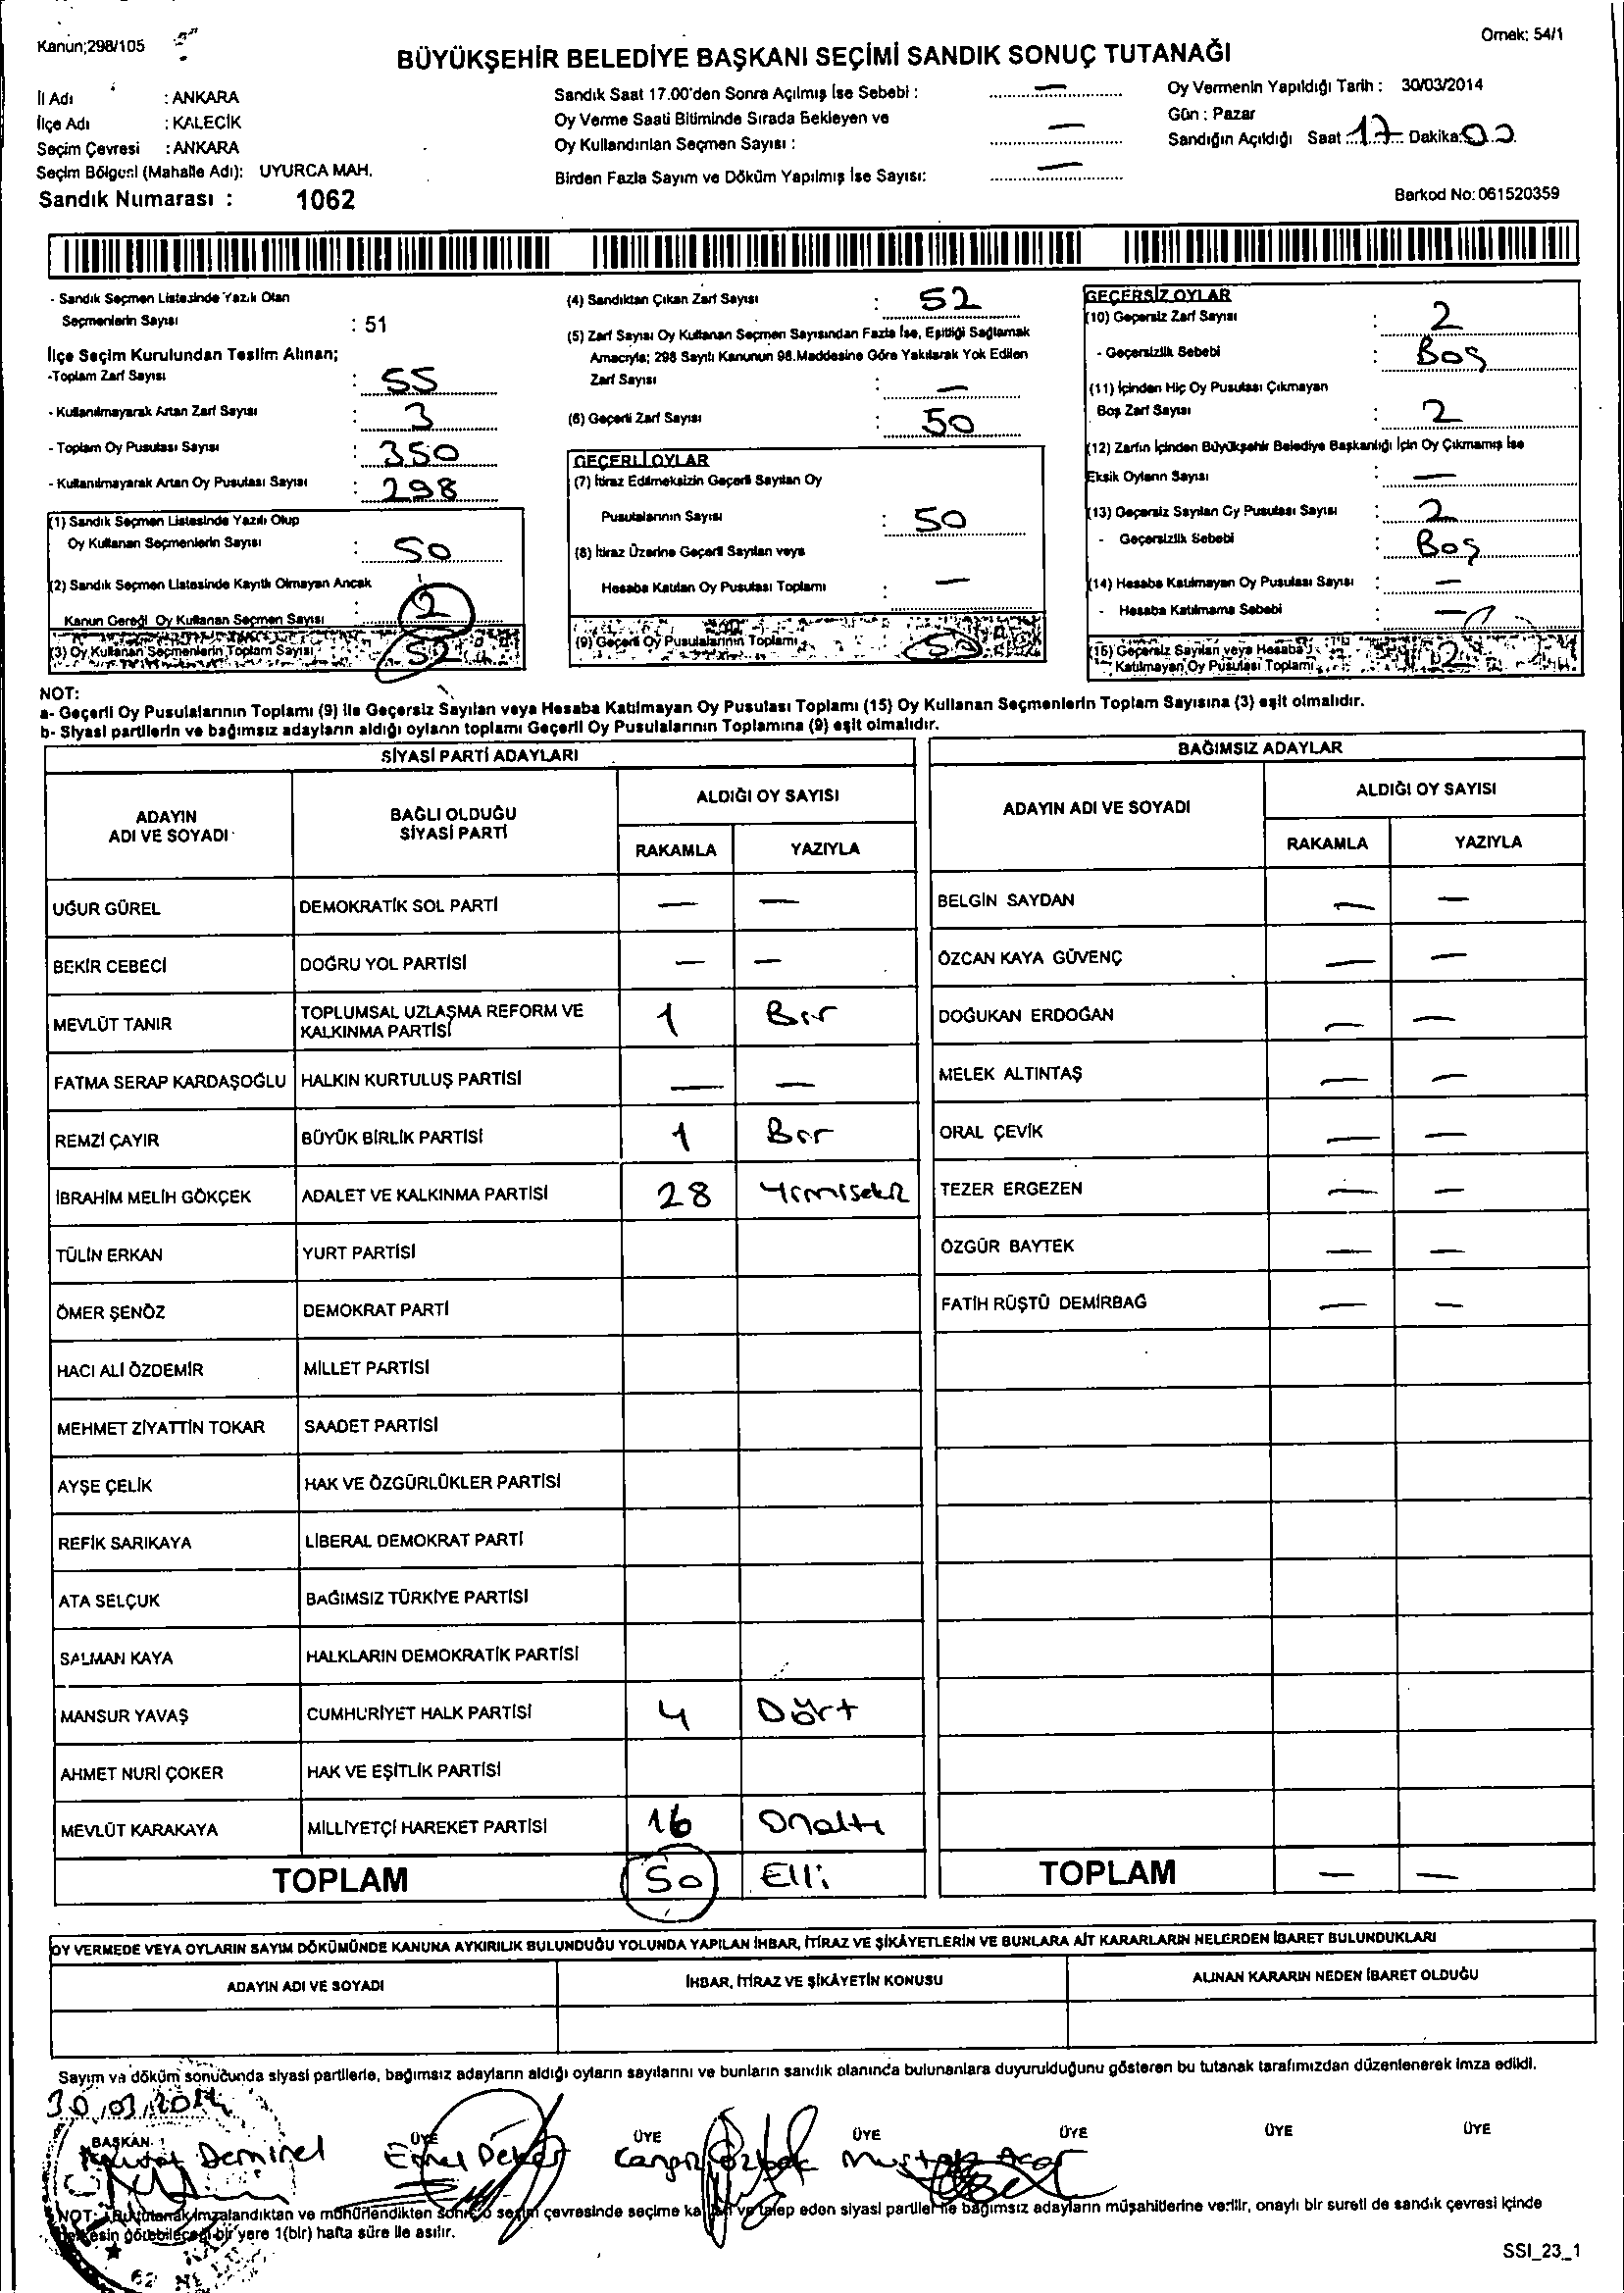 Kanun;298/105
Örnek: 54/1
BÜYÜKŞEHİR BELEDİYE BAŞKANI SEÇİMİ SANDIK SONUÇ TUTANAĞI
İl Adı : ANKARA
İlçe Adı : KALECİK
Seçim Çevresi : ANKARA
Seçim Bölgesi (Mahalle Adı): UYURCA MAH.
Sandık Numarası : 1062
Sandık Saat 17.00'den Sonra Açılmış İse Sebebi : —
Oy Verme Saati Bitiminde Sırada Bekleyen ve
Oy Kullandırılan Seçmen Sayısı : —
Birden Fazla Sayım ve Döküm Yapılmış İse Sayısı: —
Oy Vermenin Yapıldığı Tarih : 30/03/2014
Gün : Pazar
Sandığın Açıldığı Saat 17 Dakika 00
Barkod No: 061520359
- Sandık Seçmen Listesinde Yazılı Olan
Seçmenlerin Sayısı : 51
İlçe Seçim Kurulundan Teslim Alınan;
-Toplam Zarf Sayısı : 55
- Kullanılmayarak Artan Zarf Sayısı : 3
- Toplam Oy Pusulası Sayısı : 350
- Kullanılmayarak Artan Oy Pusulası Sayısı : 298
(1) Sandık Seçmen Listesinde Yazılı Olup
Oy Kullanan Seçmenlerin Sayısı : 50
(2) Sandık Seçmen Listesinde Kayıtlı Olmayan Ancak
Kanun Gereği Oy Kullanan Seçmen Sayısı : 2
(3) Oy Kullanan Seçmenlerin Toplam Sayısı 52
(4) Sandıktan Çıkan Zarf Sayısı : 52
(5) Zarf Sayısı Oy Kullanan Seçmen Sayısından Fazla İse, Eşitliği Sağlamak
Amacıyla; 298 Sayılı Kanunun 98.Maddesine Göre Yakılarak Yok Edilen
Zarf Sayısı : —
(6) Geçerli Zarf Sayısı : 50
GEÇERLİ OYLAR
(7) İtiraz Edilmeksizin Geçerli Sayılan Oy
Pusulalarının Sayısı : 50
(8) İtiraz Üzerine Geçerli Sayılan veya
Hesaba Katılan Oy Pusulası Toplamı : —
(9) Geçerli Oy Pusulalarının Toplamı 50
GEÇERSİZ OYLAR
(10) Geçersiz Zarf Sayısı : 2
- Geçersizlik Sebebi : Boş
(11) İçinden Hiç Oy Pusulası Çıkmayan
Boş Zarf Sayısı : 2
(12) Zarfın İçinden Büyükşehir Belediye Başkanlığı İçin Oy Çıkmamış İse
Eksik Oyların Sayısı : —
(13) Geçersiz Sayılan Oy Pusulası Sayısı : 2
- Geçersizlik Sebebi : Boş
(14) Hesaba Katılmayan Oy Pusulası Sayısı : —
- Hesaba Katılmama Sebebi : —
(15) Geçersiz Sayılan veya Hesaba
Katılmayan Oy Pusulası Toplamı 2
NOT:
a- Geçerli Oy Pusulalarının Toplamı (9) ile Geçersiz Sayılan veya Hesaba Katılmayan Oy Pusulası Toplamı (15) Oy Kullanan Seçmenlerin Toplam Sayısına (3) eşit olmalıdır.
b- Siyasi partilerin ve bağımsız adayların aldığı oyların toplamı Geçerli Oy Pusulalarının Toplamına (9) eşit olmalıdır.
SİYASİ PARTİ ADAYLARI
ADAYIN ADI VE SOYADI BAĞLI OLDUĞU SİYASİ PARTİ ALDIĞI OY SAYISI
RAKAMLA YAZIYLA
UĞUR GÜREL DEMOKRATİK SOL PARTİ — —
BEKİR CEBECİ DOĞRU YOL PARTİSİ — —
MEVLÜT TANIR TOPLUMSAL UZLAŞMA REFORM VE KALKINMA PARTİSİ 1 Bir
FATMA SERAP KARDAŞOĞLU HALKIN KURTULUŞ PARTİSİ — —
REMZİ ÇAYIR BÜYÜK BİRLİK PARTİSİ 1 Bir
İBRAHİM MELİH GÖKÇEK ADALET VE KALKINMA PARTİSİ 28 Yirmisekiz
TÜLİN ERKAN YURT PARTİSİ
ÖMER ŞENÖZ DEMOKRAT PARTİ
HACI ALİ ÖZDEMİR MİLLET PARTİSİ
MEHMET ZİYATTİN TOKAR SAADET PARTİSİ
AYŞE ÇELİK HAK VE ÖZGÜRLÜKLER PARTİSİ
REFİK SARIKAYA LİBERAL DEMOKRAT PARTİ
ATA SELÇUK BAĞIMSIZ TÜRKİYE PARTİSİ
SALMAN KAYA HALKLARIN DEMOKRATİK PARTİSİ
MANSUR YAVAŞ CUMHURİYET HALK PARTİSİ 4 Dört
AHMET NURİ ÇOKER HAK VE EŞİTLİK PARTİSİ
MEVLÜT KARAKAYA MİLLİYETÇİ HAREKET PARTİSİ 16 Onaltı
TOPLAM 50 Elli
BAĞIMSIZ ADAYLAR
ADAYIN ADI VE SOYADI ALDIĞI OY SAYISI
RAKAMLA YAZIYLA
BELGİN SAYDAN — —
ÖZCAN KAYA GÜVENÇ — —
DOĞUKAN ERDOĞAN — —
MELEK ALTINTAŞ — —
ORAL ÇEVİK — —
TEZER ERGEZEN — —
ÖZGÜR BAYTEK — —
FATİH RÜŞTÜ DEMİRBAĞ — —
TOPLAM — —
OY VERMEDE VEYA OYLARIN SAYIM DÖKÜMÜNDE KANUNA AYKIRILIK BULUNDUĞU YOLUNDA YAPILAN İHBAR, İTİRAZ VE ŞİKÂYETLERİN VE BUNLARA AİT KARARLARIN NELERDEN İBARET BULUNDUKLARI
ADAYIN ADI VE SOYADI İHBAR, İTİRAZ VE ŞİKÂYETİN KONUSU ALINAN KARARIN NEDEN İBARET OLDUĞU
Sayım ve döküm sonucunda siyasi partilerle, bağımsız adayların aldığı oyların sayılarını ve bunların sandık alanında bulunanlara duyurulduğunu gösteren bu tutanak tarafımızdan düzenlenerek imza edildi.
30/03/2014
BAŞKAN ÜYE ÜYE ÜYE ÜYE ÜYE ÜYE
Demirel
Mustafa Acar
NOT: Bu tutanak imzalandıktan ve mühürlendikten sonra o seçim çevresinde seçime katılan ve talep eden siyasi partiler ile bağımsız adayların müşahitlerine verilir, onaylı bir sureti de sandık çevresi içinde
herkesin görebileceği bir yere 1(bir) hafta süre ile asılır.
SSI_23_1